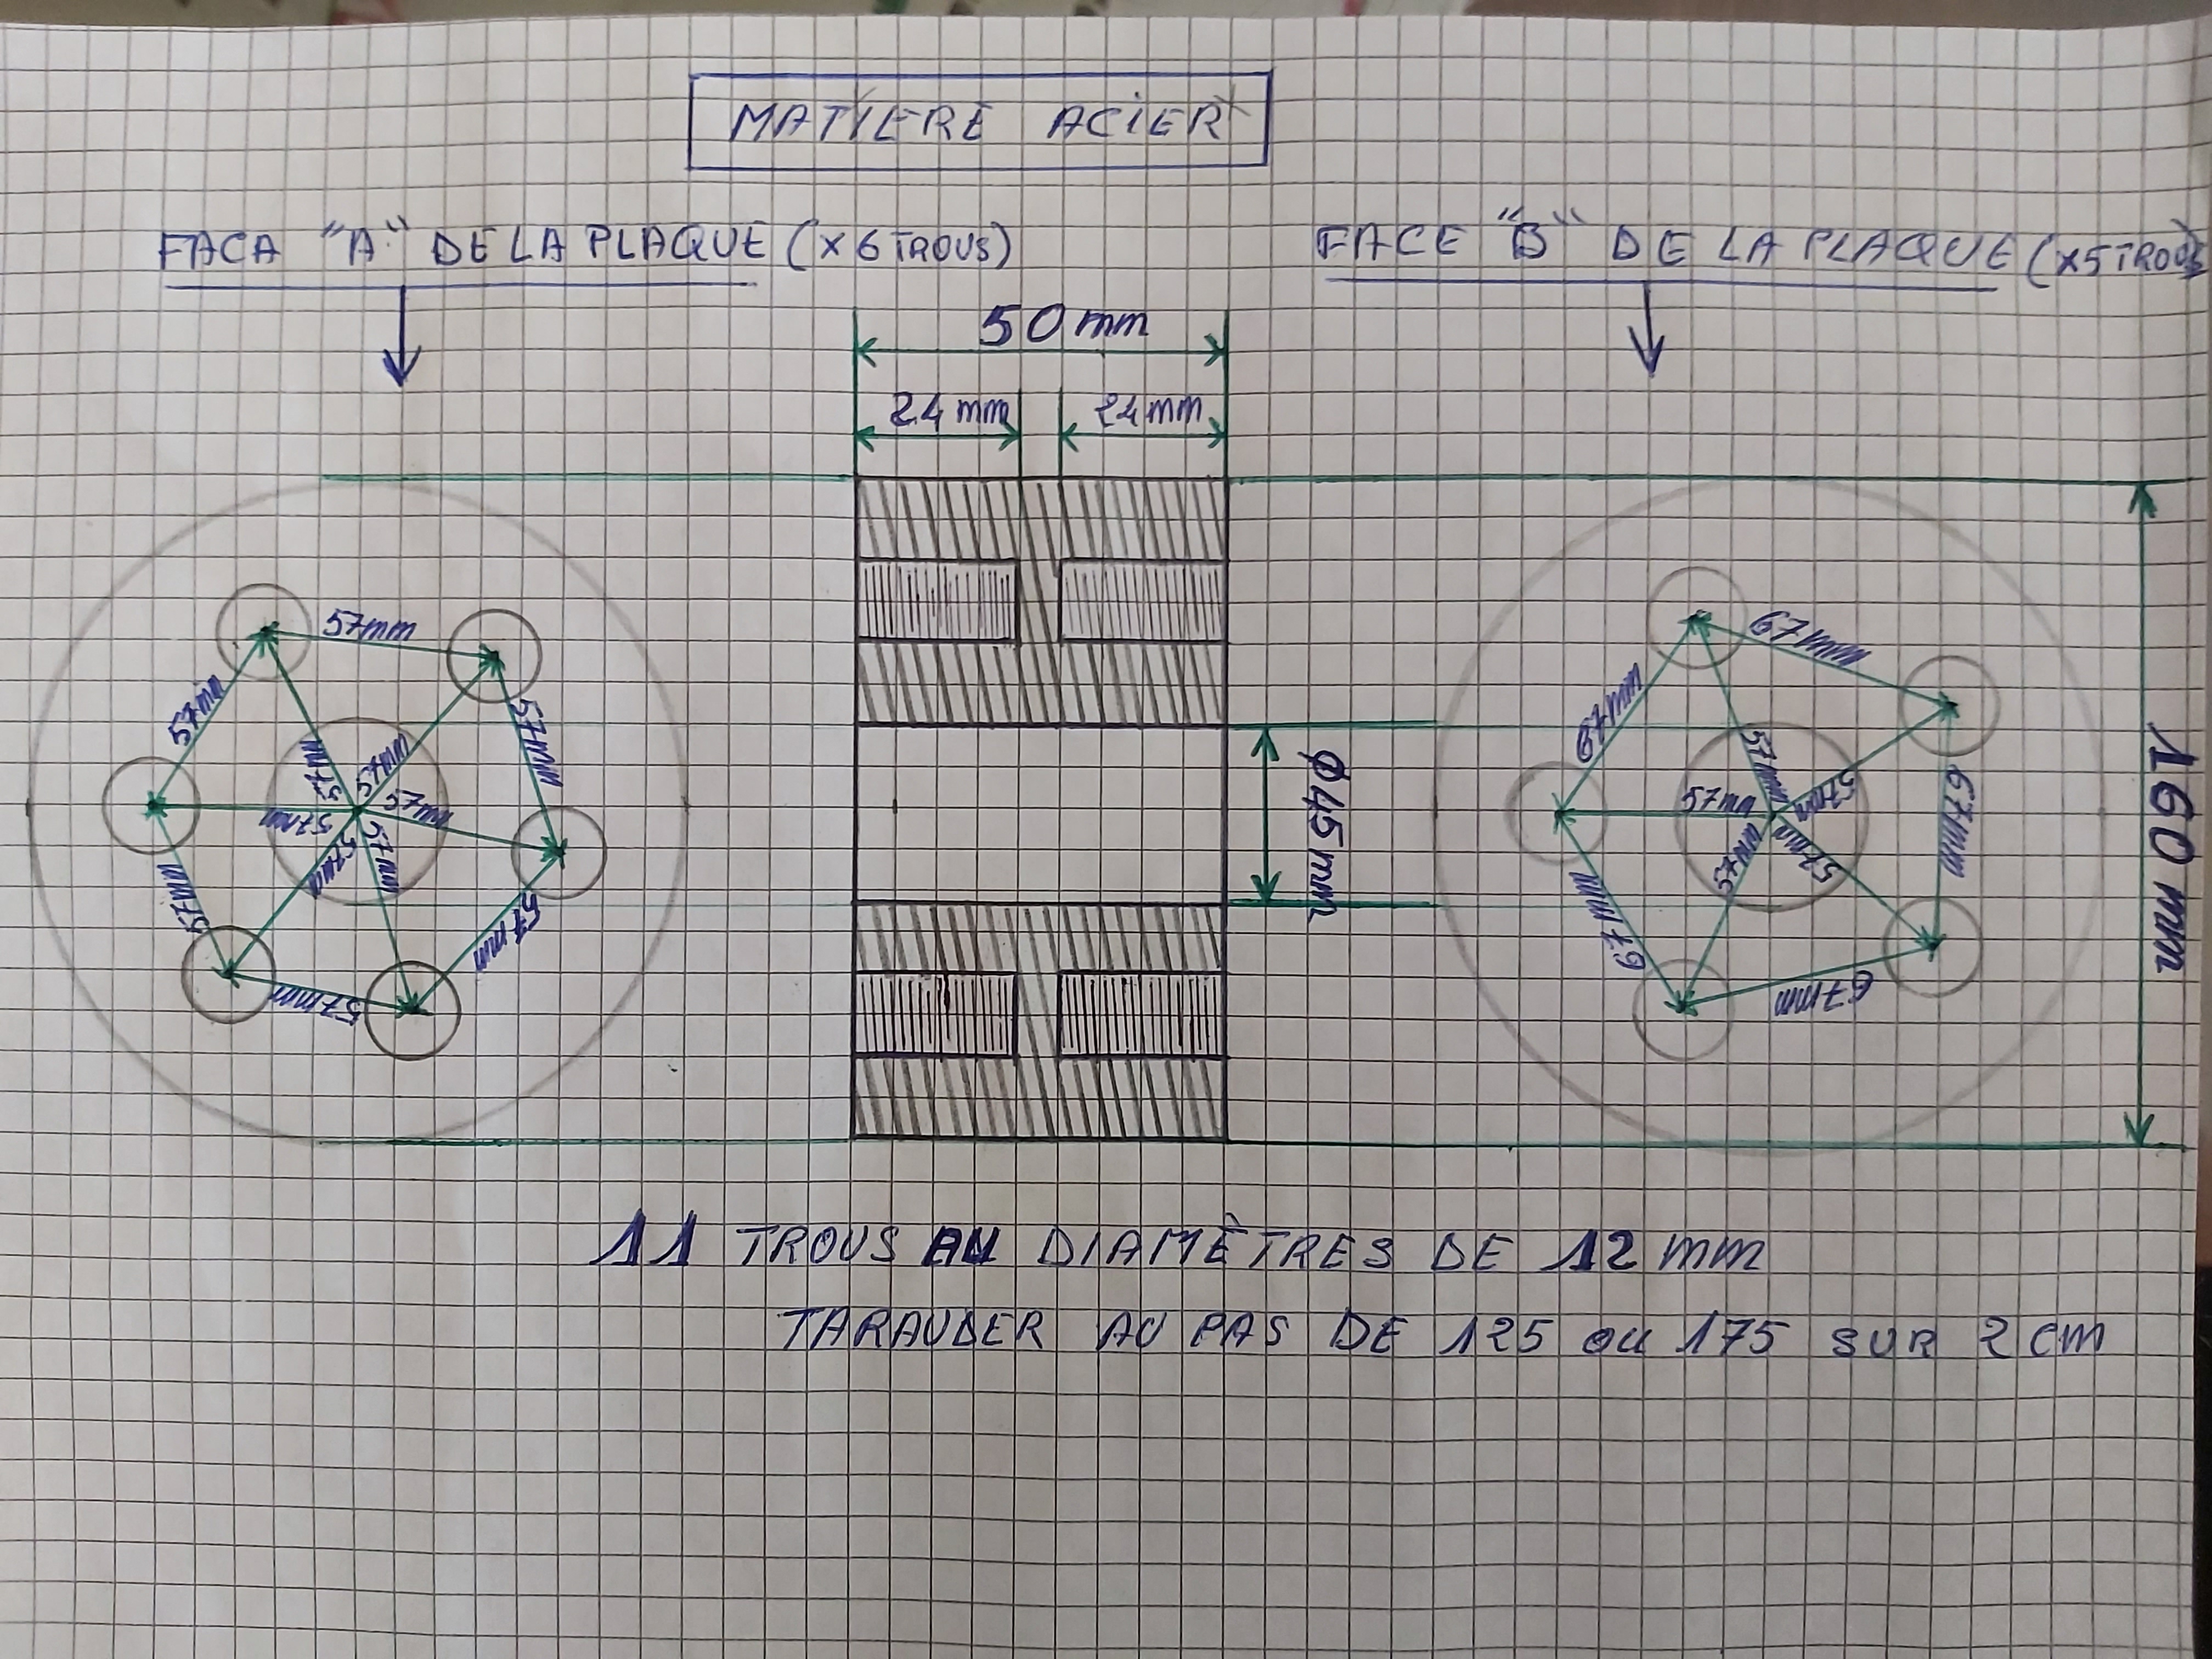 MATIERE ACIER
FACA "A" DE LA PLAQUE (X6 TROUS)
FACE "B" DE LA PLAQUE (X5 TROUS
50 mm
24 mm
24 mm
57mm
57mm
57mm
57mm
57mm
57mm
57mm
57mm
57mm
57mm
57mm
57mm
Ø45mm
67mm
67mm
67mm
67mm
67mm
57mm
57mm
57mm
57mm
57mm
160 mm
11 TROUS AU DIAMÈTRES DE 12 mm
TARAUDER AU PAS DE 125 ou 175 SUR 2 cm